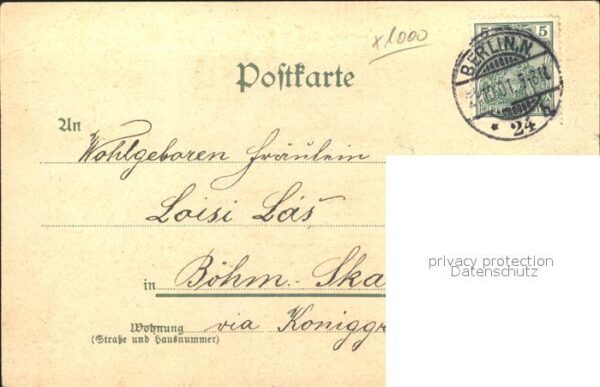 x1000
5 5
BERLIN.N
24
Postkarte
An
Wohlgeboren Fräulein
Loisi Láš
in Böhm. Ska
Wohnung via Königgr
(Straße und Hausnummer)
privacy protection
Datenschutz